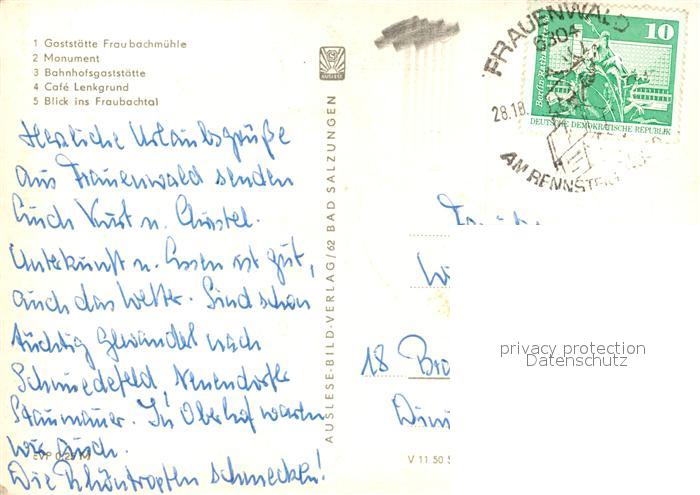 1 Gaststätte Fraubachmühle
2 Monument
3 Bahnhofsgaststätte
4 Café Lenkgrund
5 Blick ins Fraubachtal
Herzliche Urlaubsgrüße
aus Frauenwald senden
Euch Kurt u. Christel.
Unterkunft u. Essen ist gut,
auch das Wetter. Sind schon
tüchtig gewandert nach
Schmiedefeld, Neuendorfer
Staumauer. In Oberhof waren
wir auch.
Die Rhöntropfen schmecken!
EVP 0,25 M
AUSLESE
AUSLESE-BILD-VERLAG/62 BAD SALZUNGEN
FRAUENWALD
6304
28.18.
AM RENNSTEIG
10
Berlin-Rathausstraße
DEUTSCHE DEMOKRATISCHE REPUBLIK
18
V 11 50
privacy protection
Datenschutz